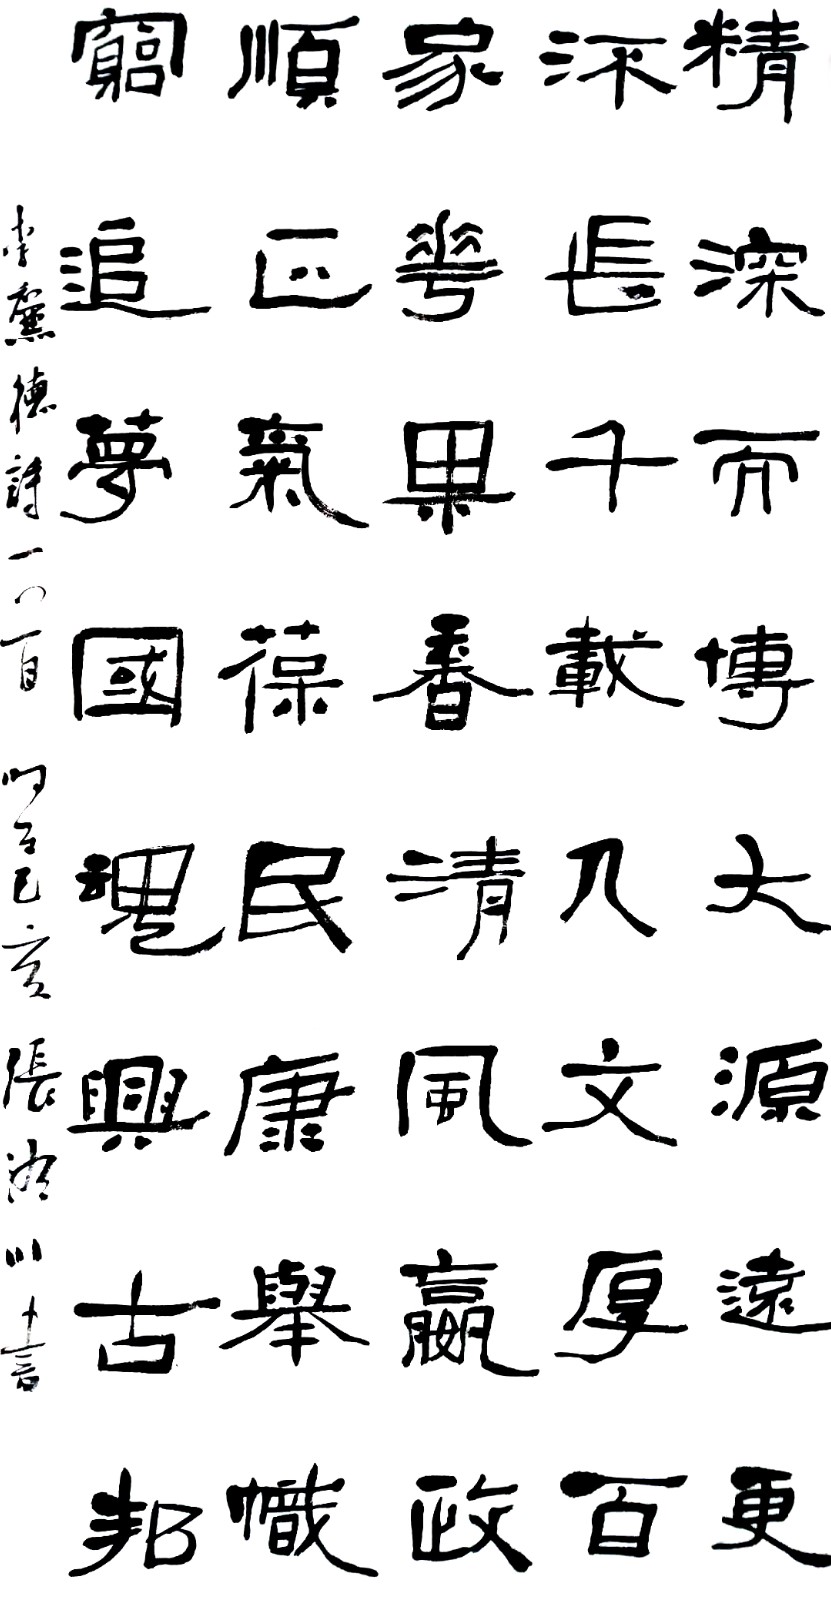 精深而博大源遠更
流長千載人文厚百
家華果香清風贏政
順正氣葆民康舉幟
窮追夢國魂興古邦
李德詩一首 时在己亥 張川書